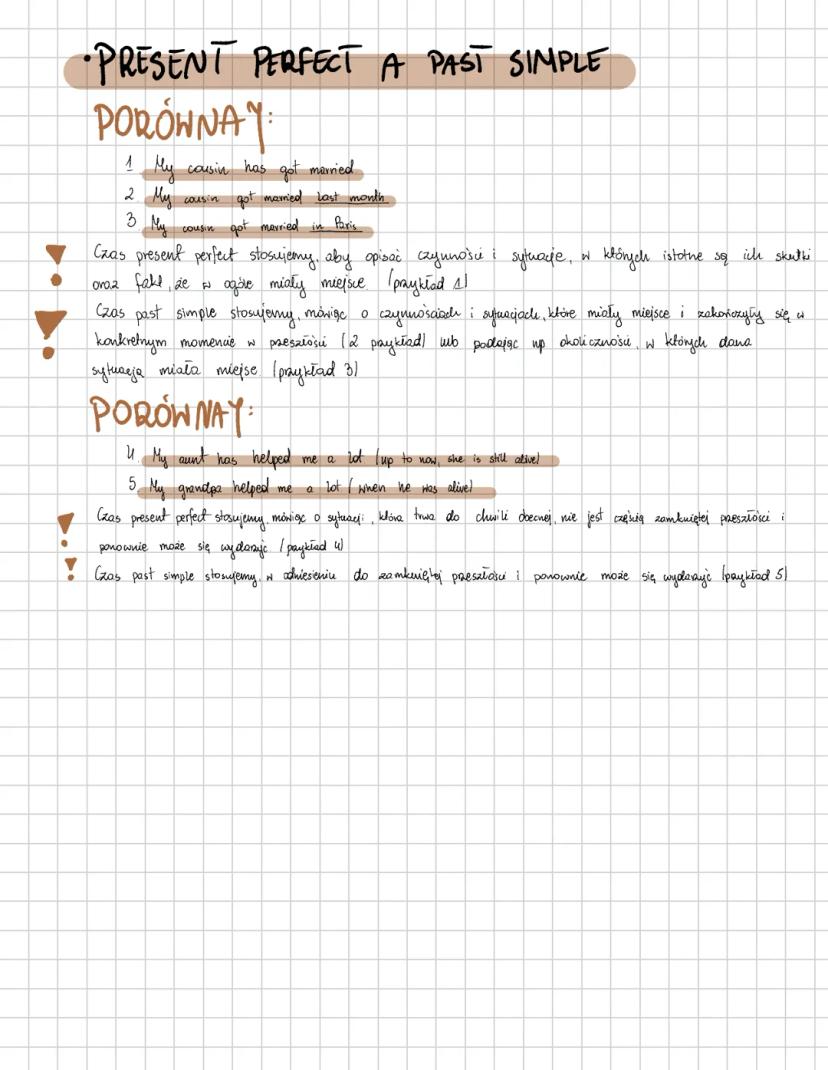 • PRESENT PERFECT A PAST SIMPLE
PORÓWNAY:
1 My cousin has got married
2 My cousin got married last month
3 My cousin got married in Paris
Czas present perfect stosujemy, aby opisać czynności i sytuacje, w których istotne są ich skutki
oraz fakt, że w ogóle miały miejsce (przykład 1)
Czas past simple stosujemy, mówiąc o czynnościach i sytuacjach, które miały miejsce i zakończyły się w
konkretnym momencie w przeszłości (2 przykład) lub podając np okoliczności, w których dana
sytuacja miała miejse (przykład 3)
PORÓWNAY:
4. My aunt has helped me a lot (up to now, she is still alive)
5. My grandpa helped me a lot (when he was alive)
Czas present perfect stosujemy, mówiąc o sytuacji, która trwa do chwili obecnej, nie jest częścią zamkniętej przeszłości i
ponownie może się wydarzyć (przykład 4)
Czas past simple stosujemy, w odniesieniu do zamkniętej przeszłości i ponownie może się wydarzyć (przykład 5)